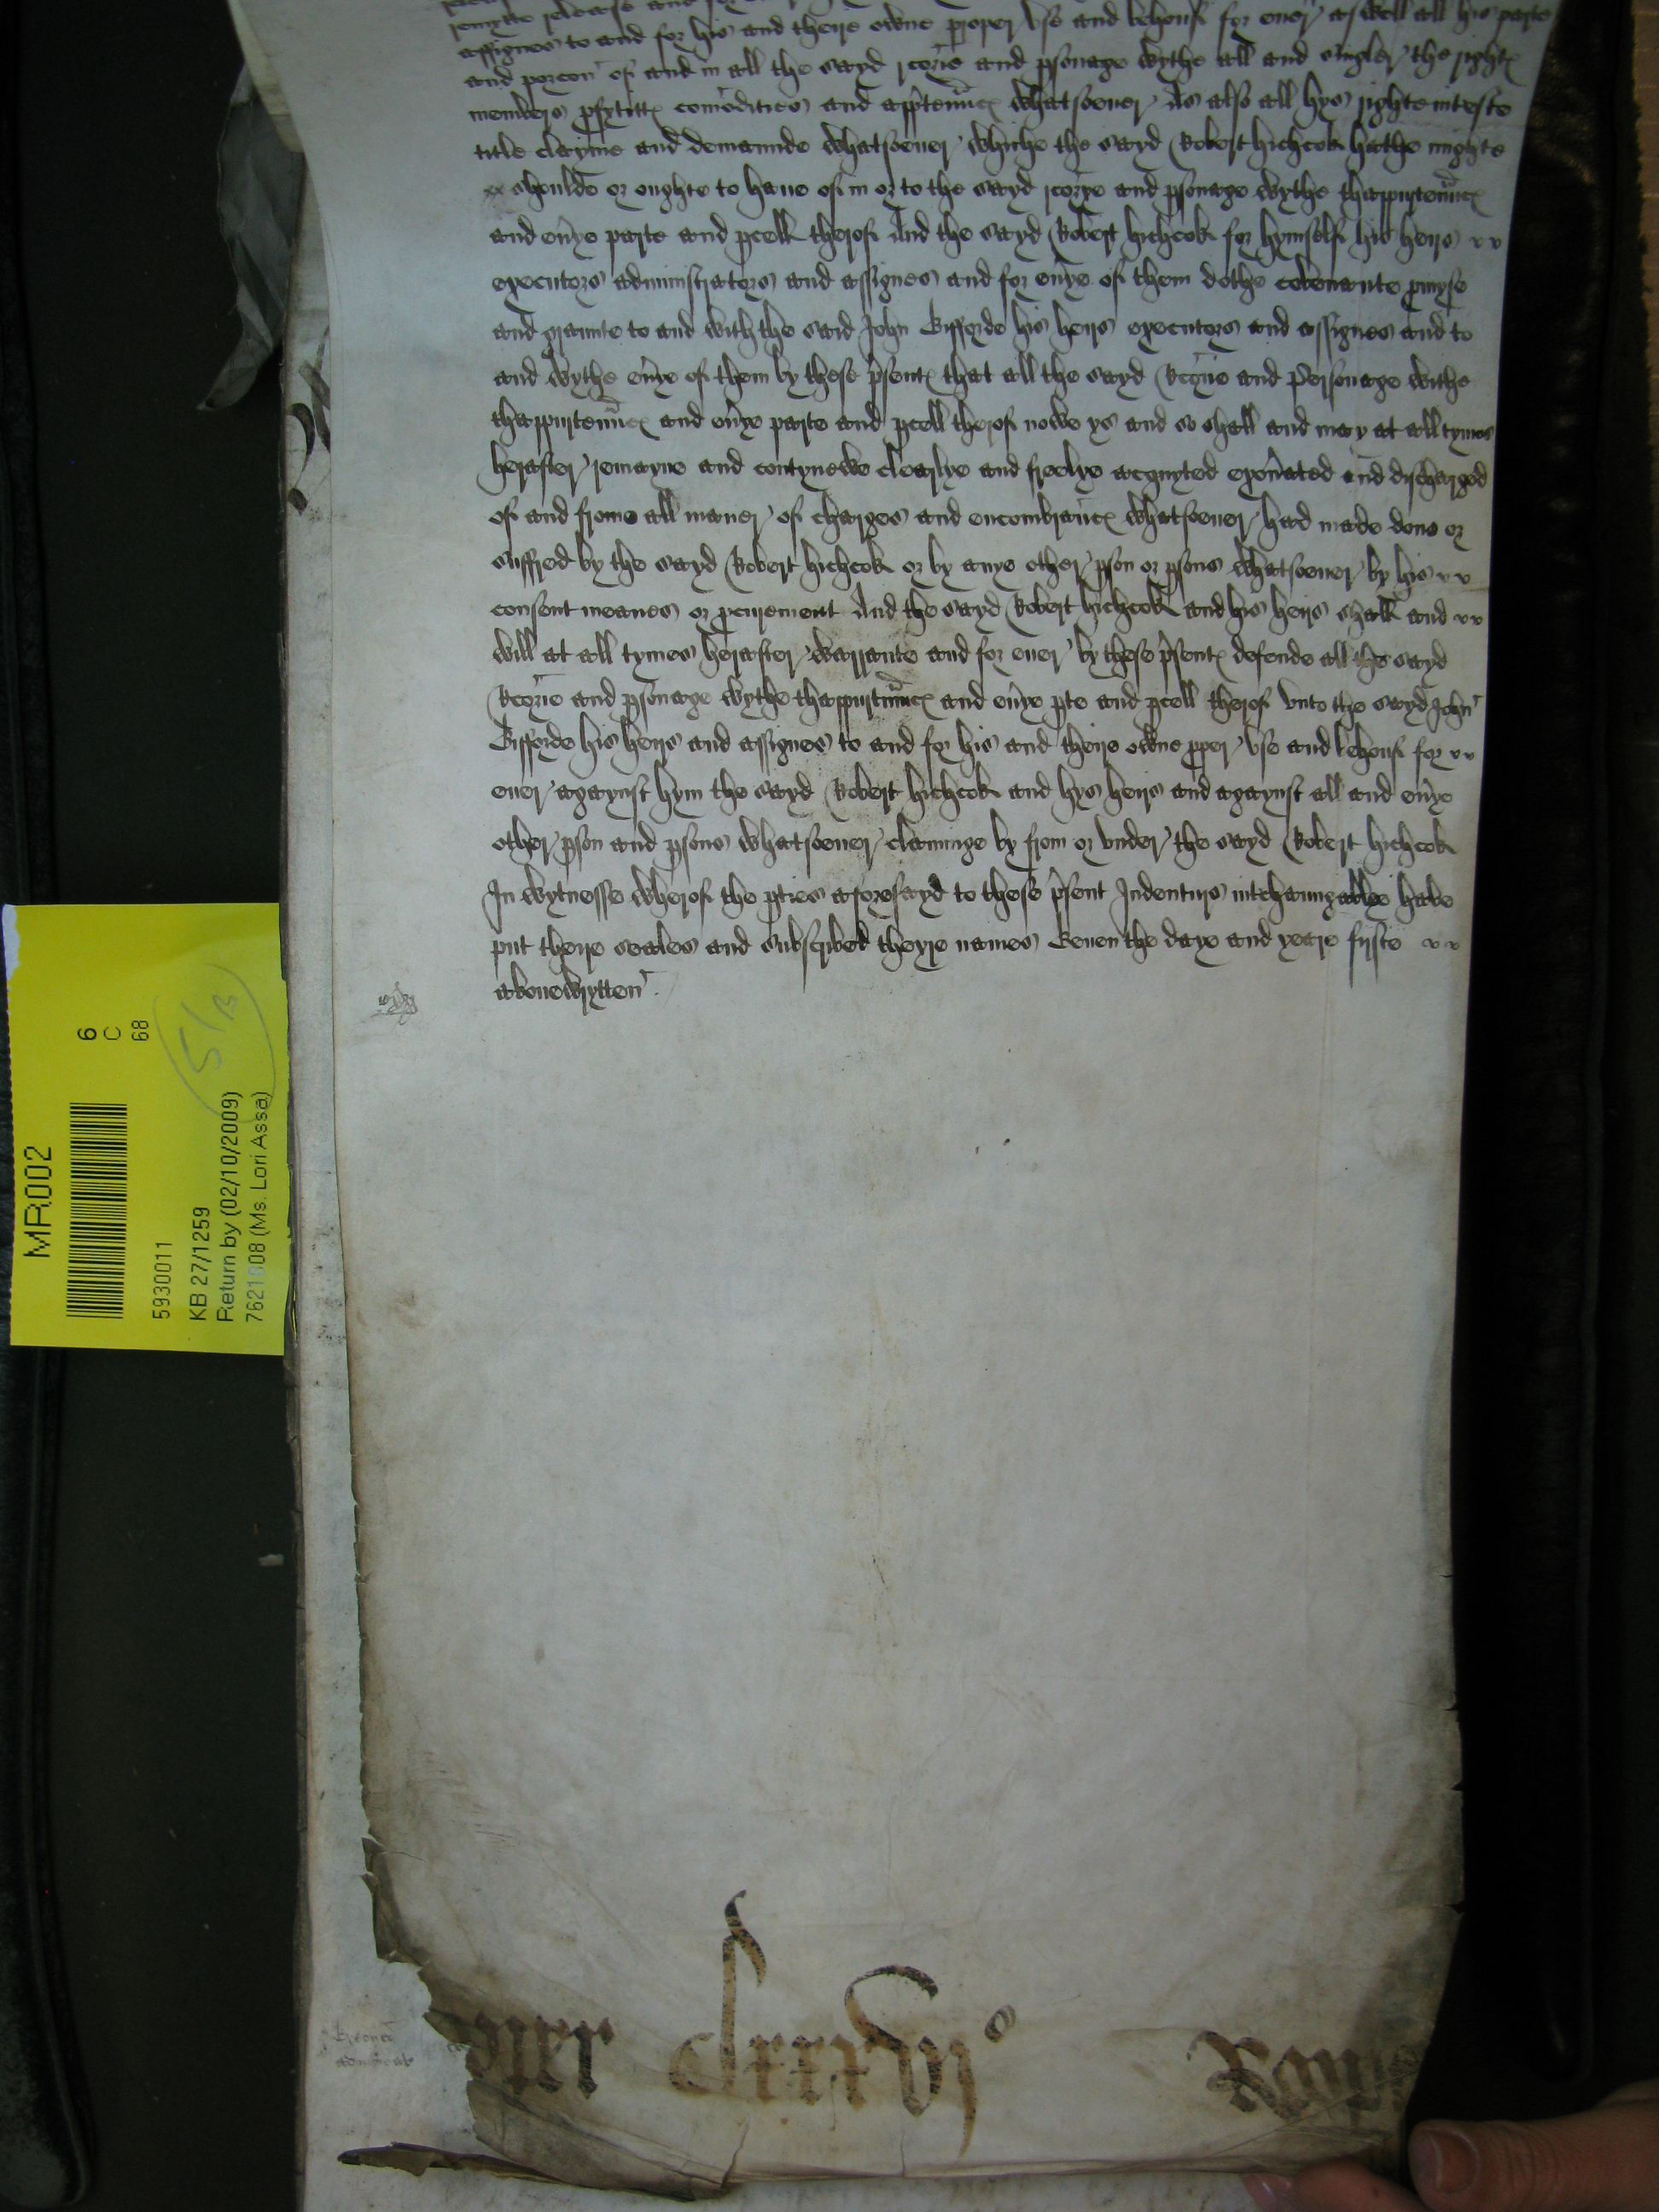 remytte release and
assignes to and for his and theire owne proper use and behouf for ever as well all his parte
and porcon of and in all the sayd rcorie and psonage wythe all and singler the rightꝭ
members pfyttꝭ comodities and apptenncꝭ whatsoever As also all hys righte interste
title clayme and demaunde whatsoever whiche the sayd Robert hichcok hathe mighte
shoulde or oughte to have of in or to the sayd rcorye and psonage wythe thappurtenncꝭ
and evye parte and pcell therof And the sayd Robert hichcok for hymself his heirs
executors administrators and assignes and for evye of them dothe covenante pmyse
and graunte to and with the said John Gifforde his heirs executors and assignes and to
and wythe evye of them by these psentꝭ that all the sayd Rcorie and Personage withe
thappurtenncꝭ and evye parte and pcell therof nowe ys and so shall and may at all tymes
herafter remayne and contynewe clearlye and freelye acquyted exonated and discharged
of and frome all maner of charges and encombrancꝭ whatsoever had made done or
suffred by the sayd Robert hichcok or by anye other pson or psons whatsoever by his
consent meanes or pcurement And the sayd Robert hichcok and his heirs shall and
will at all tymes herafter warrante and for ever by these psentꝭ defende all the sayd
Rcorie and psonage wythe thappurtenncꝭ and evye pte and pcell therof unto the sayd John
Gifforde his heirs and assignes to and for his and theire owne pper use and behouf for
ever agaynst hym the sayd Robert hichcok and hys heirs and agaynst all and evye
other pson and psons whatsoever claminge by from or under the sayd Robert hichcok
In wytnesse wherof the pties aforesayd to these psent Indenturs intchaungablye have
put theire seales and subscribed theyre names Geven the daye and yeare firste
abovewrytten
MR002
6
C
68
5/13
5930011
KB 27/1259
Return by (02/10/2009)
(Ms. Lori Assa)